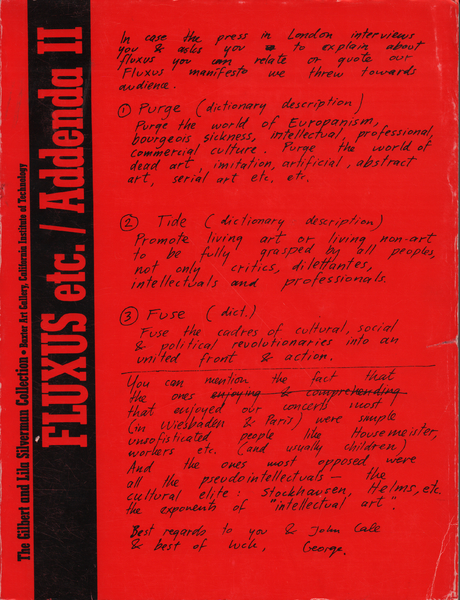 The Gilbert and Lila Silverman Collection • Baxter Art Gallery, California Institute of Technology
FLUXUS etc. / Addenda II
In case the press in London interviews
you & asks you to explain about
fluxus you can relate or quote our
Fluxus manifesto we threw towards
audience.
① Purge (dictionary description)
Purge the world of Europanism,
bourgeois sickness, intellectual, professional,
commercial culture. Purge the world of
dead art, imitation, artificial, abstract
art, serial art etc. etc.
② Tide (dictionary description)
Promote living art or living non-art
to be fully grasped by all peoples,
not only critics, dilettantes,
intellectuals and professionals.
③ Fuse (dict.)
Fuse the cadres of cultural, social
& political revolutionaries into an
united front & action.
You can mention the fact that
the ones enjoying & comprehending
that enjoyed our concerts most
(in Wiesbaden & Paris) were simple
unsofisticated people like Housemeister,
workers etc. (and usually children)
And the ones most opposed were
all the pseudointellectuals — the
cultural elite: Stockhausen, Helms, etc.
the exponents of "intellectual art".
Best regards to you & John Cale
& best of luck, George.